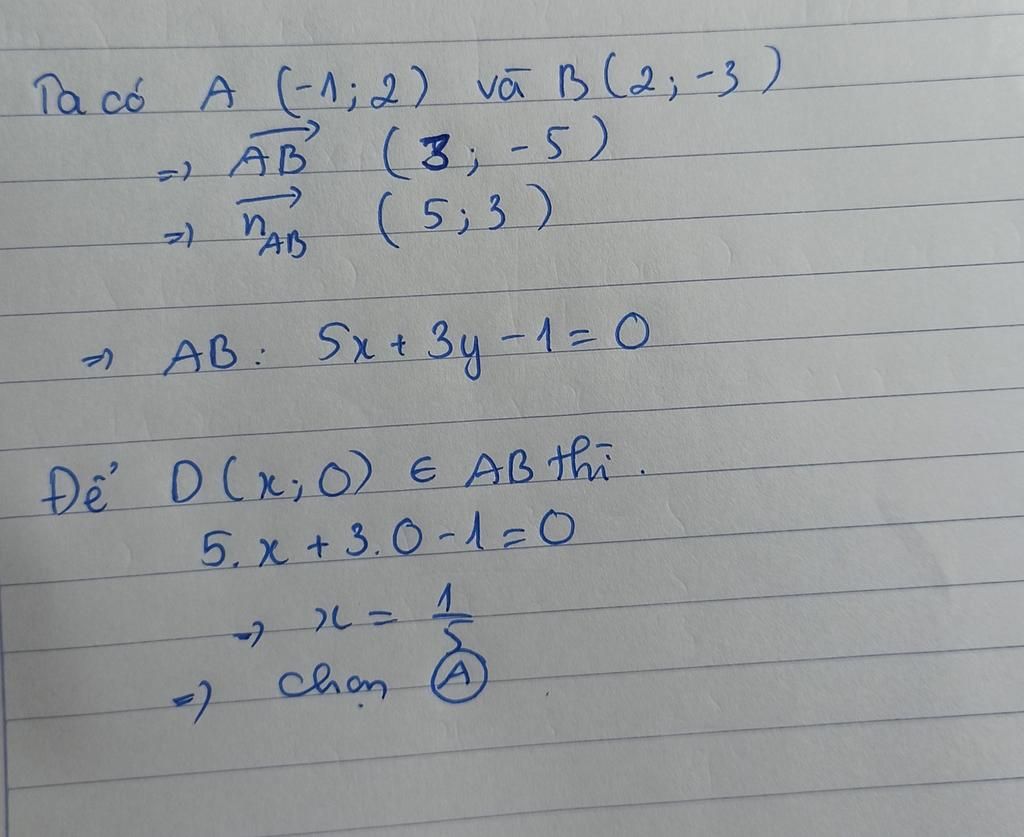 Ta có A (-1; 2) và B (2; -3)
=> \overrightarrow{AB} (3; -5)
=> \overrightarrow{n_{AB}} (5; 3)
=> AB: 5x + 3y - 1 = 0
Để D(x; 0) ∈ AB thì.
5. x + 3. 0 - 1 = 0
=> x = \frac{1}{5}
=> chọn Ⓐ